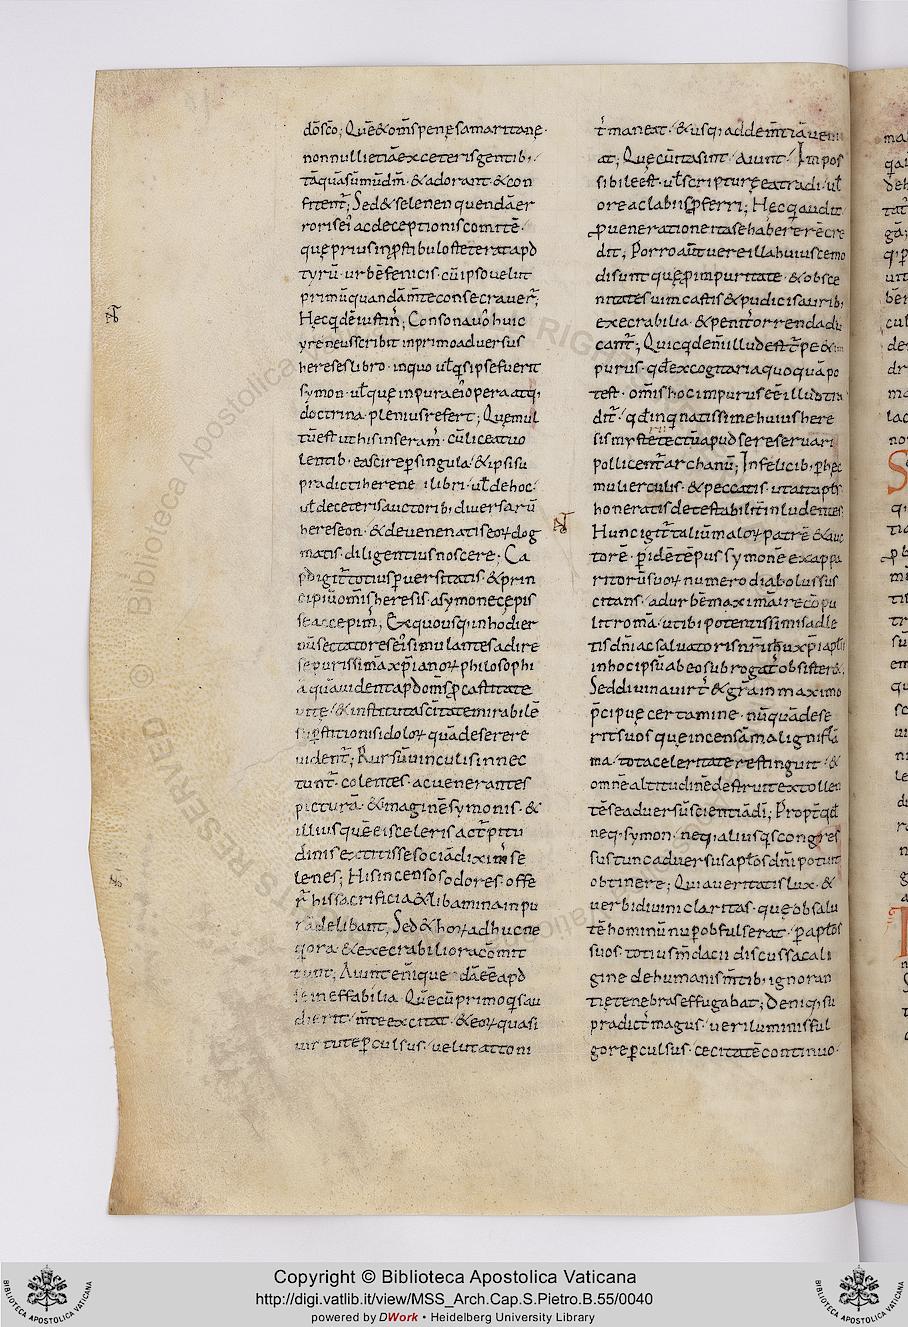 dōsc̄o; Quē&om̄s pene samaritane·
non nulli etiā excęteris gentib;·
tāquā sum̄u dm̄· & adorant· & con
fitent̄; Sed & selenen quendā er
roris ei' ac deceptionis comitē·
que prius in p̄stibulo steterat apd
tyrū· urbē fenicis· cū ipso uelut
primū quandā m̄te consecrauer̄;
Hec qdē iustin'; Consonauō huic
yreneus scribit in primo aduersus
hereses libro· in quo ul̄ q̄s ipse fuerit
symon· ul̄ que inpura ei' opera atq;
doctrina· plenius refert; Que mul
tū est ut his inseram'· cū liceat uo
lentib· ea scire p singula· & ipsi su
pradicti herene i libri· ul̄ de hoc·
ul̄ de ceteris auctorib; diuersarū
hereseon· & de uenenatis eoꝝ dog
matis· diligentius noscere; Ca
p̄d igit̄ totius puersitatis· & prin
cipiū om̄is heresis· a symone cępis
se accepim'; Ex quo usq; in hodier
nū sectatores ei' simulantes adire
se purissimā xp̄ianoꝝ philosophi
ā quā uident apd om̄s p castitate
uite· & instituta scītatē mirabilē
sup̄stitionis idoloꝝ quā deserere
uident̄; Rursū uinculis in nec
tunt̄· colentes· ac uenerantes
picturā· & imaginē symonis· &
illius quē ei sceleris ac t̄pitu
dinis extitisse sociā diximus se
lenes; His incensos odores· offe
r̄ his sacrificia & libamina in pu
rā delibant; Sed & hoꝝ adhuc ne
qiora· & execrabiliora com̄it
tunt; Aiunt en̄i que dā eē apd
se ineffabilia· Que cū primo q̄s au
dierit· m̄te excitat· & eoꝝ quasi
uirtute pculsus· uelut attoni
t' maneat· & usq; ad dem̄tiā ueni
at; Que cū ita sint· aiunt· Impos
sibile est· ul̄ scripturę ea tradi· ul̄
ore ac labiis p̄ferri; Hec q̄ audit
p ueneratione ita se habere rē cre
dit; Porro aut̄ uere illa huiuscemo
di sunt que p impuritate· & obsce
nitates ui m castis & pudicis aurib;
execrabilia· & penit' orrenda di
cant̄; Quicqd en̄i illud est t̄pe & im
purus· qd̄ excogitari a quoquā po
test· om̄is hoc impurus eē illud tra
dit̄· qd inqnatissime huius here
sis mysteria tectū apud se reseruari
pollicent̄ archanū; Infelicib; p hęc
mulierculis· & peccatis· ut ait apl̄s
honeratis detestabilit̄ inludentes;
Hunc igit̄ taliū maloꝝ patrē & auc
torē· p idē tēpus symonē ex appa
ritorū suoꝝ numero diabolus sus
citans· ad urbē maximā ire cōpu
lit romā· ut ibi potentissimis adle
tis dn̄i ac saluatoris nr̄i ihū xp̄i aplīs
in hoc ipsū ab eo subrogat' obsister&;
Sed diuina uirt' & grā in maximo
p̄cipue certamine· nūquā dese
rit suos que incensā maligni flā
ma· tota celeritate restinguit· &
omnē altitudinē destruit extollen
tē se aduersū scientiā dī; Propt̄ qd̄
neq; symon· neq; alius qs congres
sus tunc aduersus apl̄os dn̄i potuit
obtinere; Quia ueritatis lux· &
uerbi diuini claritas· que ob salu
tē hominū nup obfulserat· p apl̄os
suos· totius m̄dacii discussa cali
gine de humanis m̄tib; ignoran
tię tenebras effugabat; Deniq; su
pradict' magus· ueri luminis ful
gore pculsus· cecitatē continuo·
Copyright © Biblioteca Apostolica Vaticana
http://digi.vatlib.it/view/MSS_Arch.Cap.S.Pietro.B.55/0040
powered by DWork • Heidelberg University Library